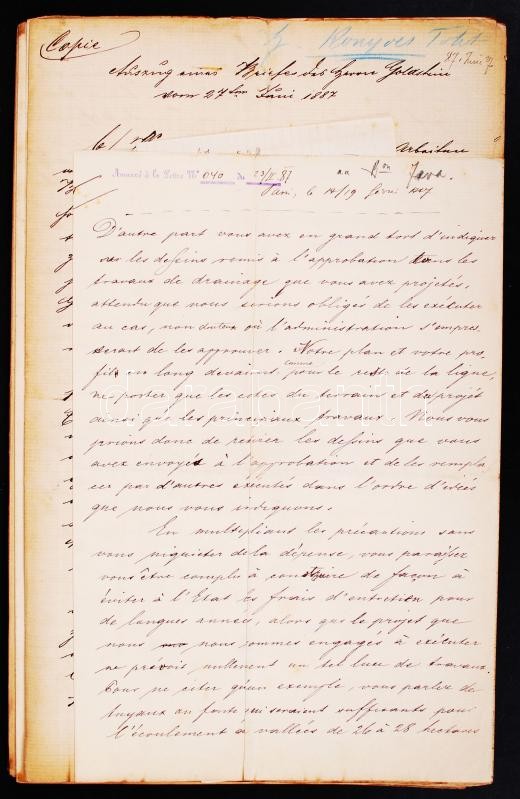 Copie
Könyves Tóth
Auszug eines Briefes des Herrn Goldstein
vom 27ten Juni 1887
Annexé à la Lettre No 040 du 23/II 87
au Bon Java.
Paris, le 14/19 février 1887
D'autre part vous avez eu grand tort d'indiquer
sur les dessins remis à l'approbation tous les
travaux de drainage que vous avez projetés,
attendu que nous serions obligés de les exécuter
au cas, non douteux où l'administration s'empres-
serait de les approuver. Notre plan et votre pro-
fil en long devaient, comme pour le reste de la ligne,
ne porter que les cotes du terrain et du projet
ainsi que les principaux travaux. Nous vous
prions donc de retirer les dessins que vous
avez envoyés à l'approbation et de les rempla-
cer par d'autres exécutés dans l'ordre d'idées
que nous vous indiquons.
En multipliant les précautions sans
vous inquiéter de la dépense, vous paraissez
vous être complu à construire de façon à
éviter à l'Etat les frais d'entretien pour
de longues années, alors que le projet que
nous nous sommes engagés à exécuter
ne prévoit nullement un tel luxe de travaux.
Pour ne citer qu'un exemple, vous parlez de
tuyaux en fonte qui seraient suffisants pour
l'écoulement à vallées de 26 à 28 hectares